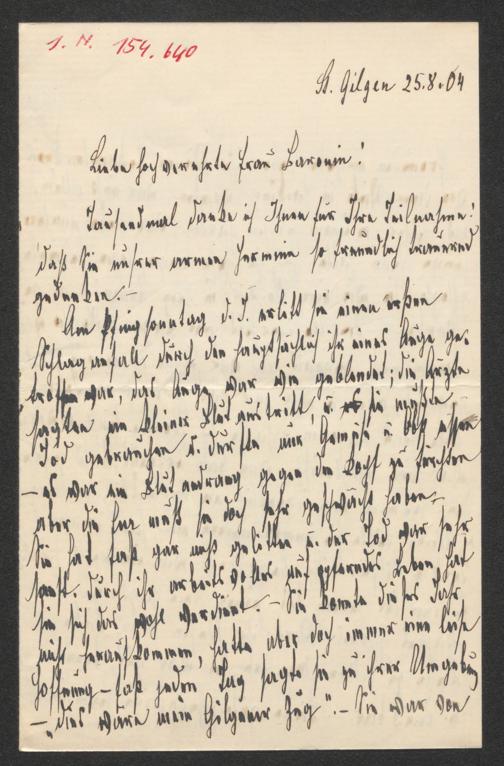 J. N. 154.640
St. Gilgen 25.8.04
Liebe hochverehrte Frau Baronin!
Tausendmal danke ich Ihnen für Ihre Teilnahme!
daß Sie unsrer armen Hermine so freundlich trauernd
gedenken. –
Am Pfingstsonntag d. J. erlitt sie einen ersten
Schlaganfall durch den hauptsächlich ihr eines Auge ge-
troffen war, das Auge war wie geblendet; die Ärzte
sagten ein kleiner Blutaustritt, u. sie mußte
Jod gebrauchen u. durfte nur Gemüse u. Obst essen
– es war ein Blutandrang gegen den Kopf zu fürchten
aber die Kur muß sie doch sehr geschwächt haben –
Sie hat fast gar nicht gelitten u. der Tod war sehr
sanft. durch ihr arbeitsvolles aufopferndes Leben hat
sie sich das wohl verdient. – Sie konnte dieses Jahr
nicht heraufkommen, hatte aber doch immer eine leise
Hoffnung – fast jeden Tag sagte sie zu ihrer Umgebung
– „dies wäre mein Gilgener Zug". – Sie war von